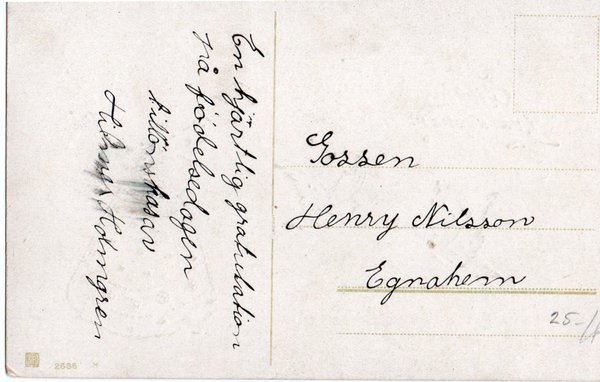 En hjärtlig gratulation
på födelsedagen
tillönskas av
Hilmer Holmgren
Gossen
Henry Nilsson
Egnahem
25-/
2686